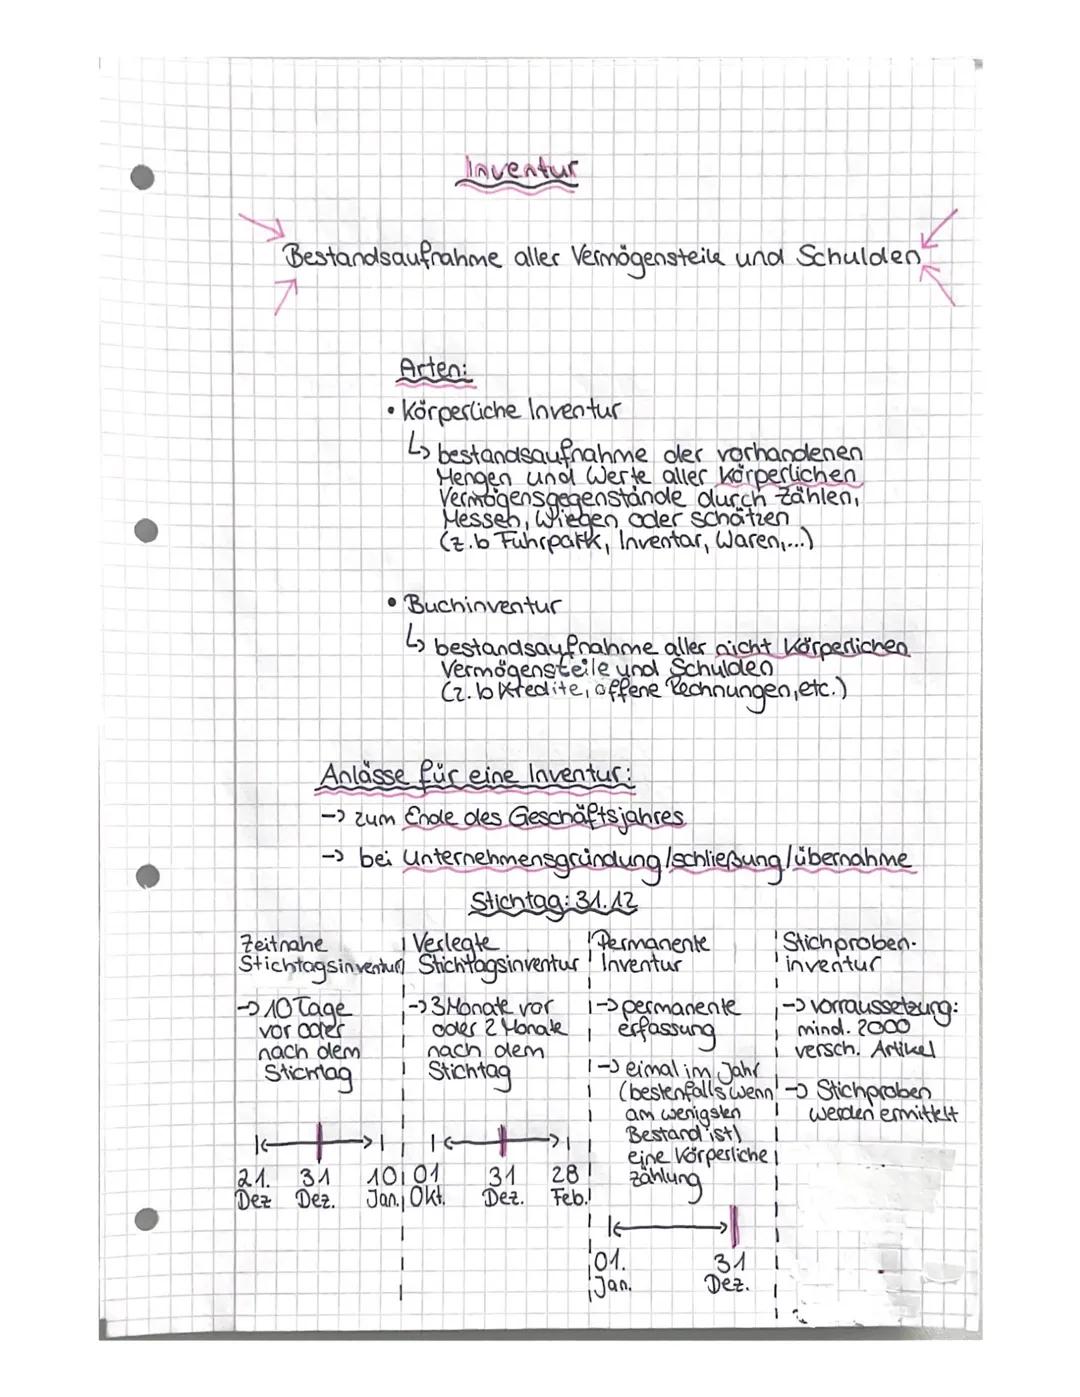 Inventur
Bestandsaufnahme aller Vermögensteile und Schulden
Arten:
• Körperliche Inventur
↳ bestandsaufnahme der vorhandenen
Mengen und Werte aller körperlichen
Vermögensgegenstände durch zählen,
Messen, Wiegen oder schätzen
(z.b Fuhrpark, Inventar, Waren,...)
• Buchinventur
↳ bestandsaufnahme aller nicht körperlichen
Vermögensteile und Schulden
(z.b Kredite, offene Rechnungen, etc.)
Anlässe für eine Inventur:
-> zum Ende des Geschäftsjahres
-> bei Unternehmensgründung/schließung/übernahme
Stichtag: 31.12
Zeitnahe
Stichtagsinventur
-> 10 Tage
vor oder
nach dem
Stichtag
21. 31 10
Dez Dez. Jan.
Verlegte
Stichtagsinventur
-> 3 Monate vor
oder 2 Monate
nach dem
Stichtag
01 31 28
Okt. Dez. Feb.
Permanente
Inventur
-> permanente
erfassung
-> eimal im Jahr
(bestenfalls wenn
am wenigsten
Bestand ist)
eine Körperliche
zählung
01. 31
Jan. Dez.
Stichproben-
inventur
-> vorraussetzung:
mind. 2000
versch. Artikel
-> Stichproben
werden ermittelt